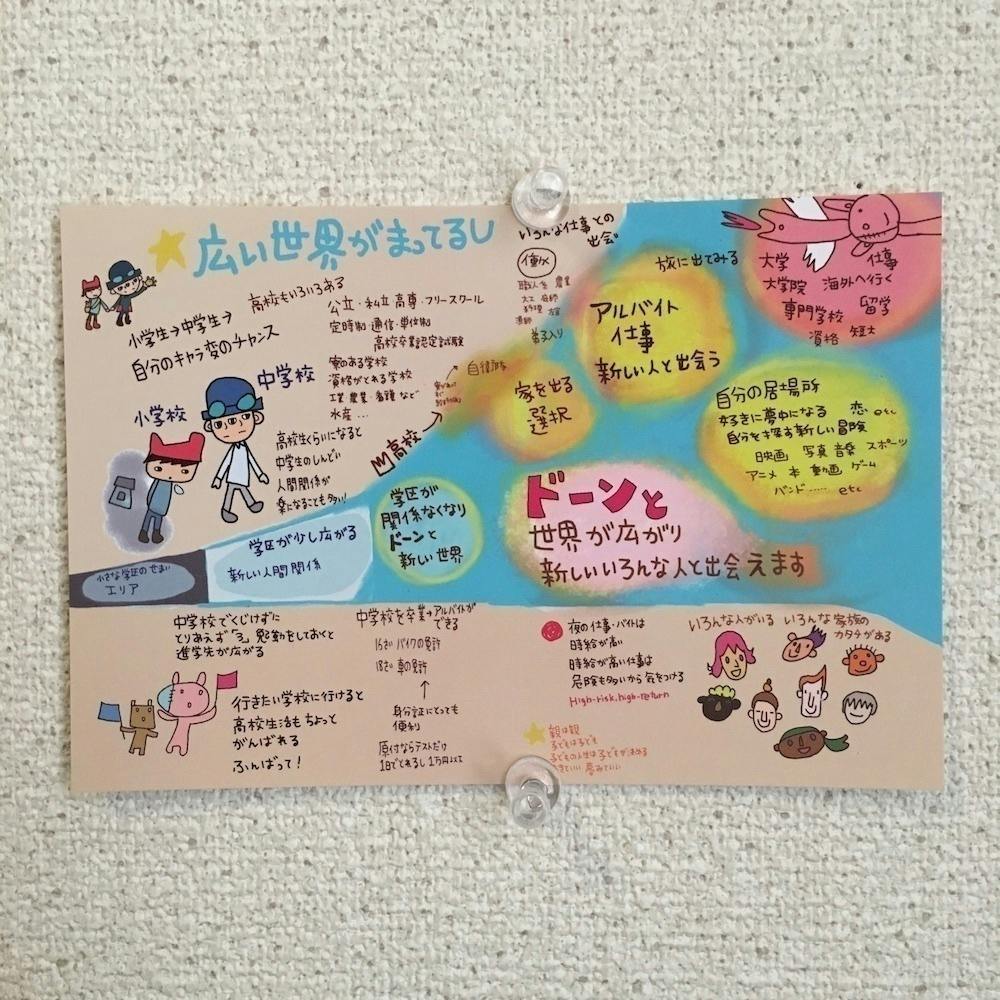 広い世界がまってるし
小学生→中学生→
自分のキャラ変のチャンス
高校もいろいろある
公立・私立 高専・フリースクール
定時制・通信・単位制
高校卒業認定試験
寮のある学校
資格がとれる学校
工業 農業・看護 など
水産…
小学校
中学校
高校生くらいになると
中学生のしんどい
人間関係が
楽になることも多い!
高校
いろんな仕事との
出会い
働く
旅に出てみる
アルバイト
仕事
新しい人と出会う
家を出る
選択
大学
仕事
大学院
海外へ行く
専門学校
留学
資格
短大
自分の居場所
好きに夢中になる
恋 etc
自分を探す新しい冒険
映画 写真 音楽 スポーツ
アニメ 本 動画 ゲーム
バンド…… etc
小さな学区のせまい
エリア
学区が少し広がる
新しい人間関係
学区が
関係なくなり
ドーンと
新しい世界
ドーンと
世界が広がり
新しいいろんな人と出会えます
中学校でくじけずに
とりあえず「3」勉強をしておくと
進学先が広がる
行きたい学校に行けると
高校生活もちょっと
がんばれる
ふんばって!
中学校を卒業→アルバイトが
できる
16さい バイクの免許
18さい 車の免許
↑
身分証にとっても
便利
原付ならテストだけ
1日でとれるし 1万円以下
夜の仕事・バイトは
時給が高い
時給が高い仕事は
危険も多いから気をつける
High-risk, high-return
親は親
子どもは子ども
子どもの人生は子どもが決める
いろんな人がいる
いろんな家族の
カタチがある